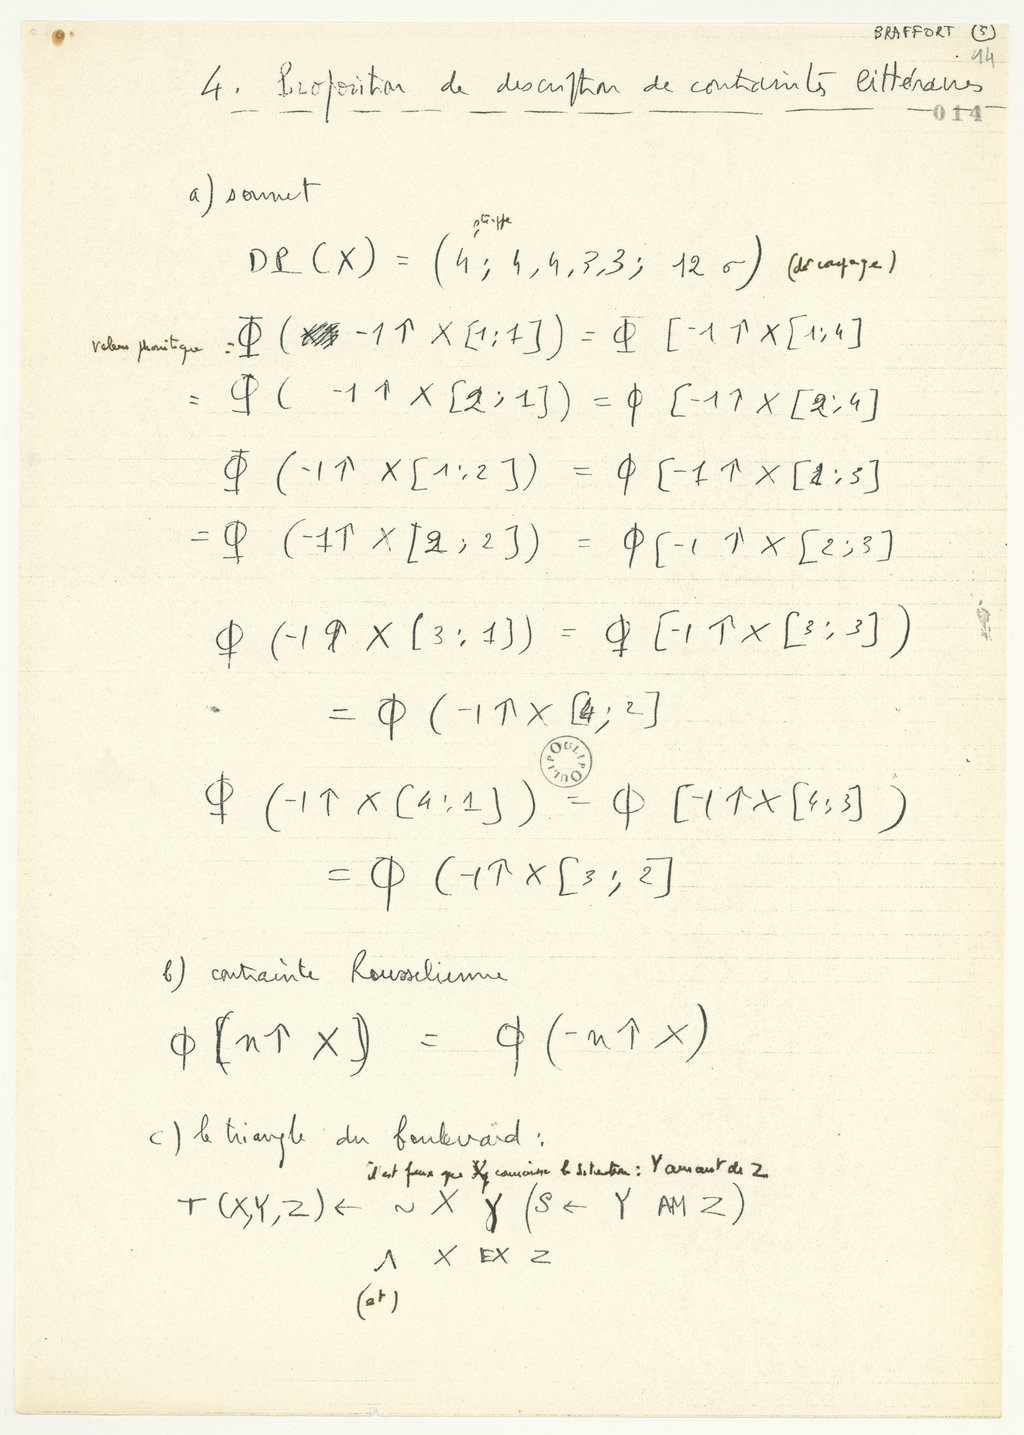 BRAFFORT (5)
14
4. Proposition de description de contraintes littéraires
014
a) sonnet
strophe
DP (X) = (4; 4,4,3,3; 12 σ) (découpage)
valeur phonétique = Φ ( -1↑ X [1;1]) = Φ [-1 ↑ X [1;4]
= Φ ( -1 ↑ X [2;1]) = Φ [-1↑ X [2;4]
Φ (-1↑ X [1;2]) = Φ [-1↑ X [1;3]
= Φ (-1↑ X [2;2]) = Φ [-1 ↑ X [2;3]
Φ (-1↑ X [3;1]) = Φ [-1↑X [3;3])
= Φ (-1↑X [4;2]
OULIPO OULIPO
Φ (-1↑ X [4;1]) = Φ [-1↑X [4;3])
= Φ (-1↑X [3;2]
b) contrainte Rousselienne
Φ [n↑ X]) = Φ (-n↑ X)
c) le triangle du boulevard :
il est faux que X connaisse la situation : Y amant de Z
T (X,Y,Z) ← ~ X γ (S ← Y AM Z)
Λ X EX Z
(et)